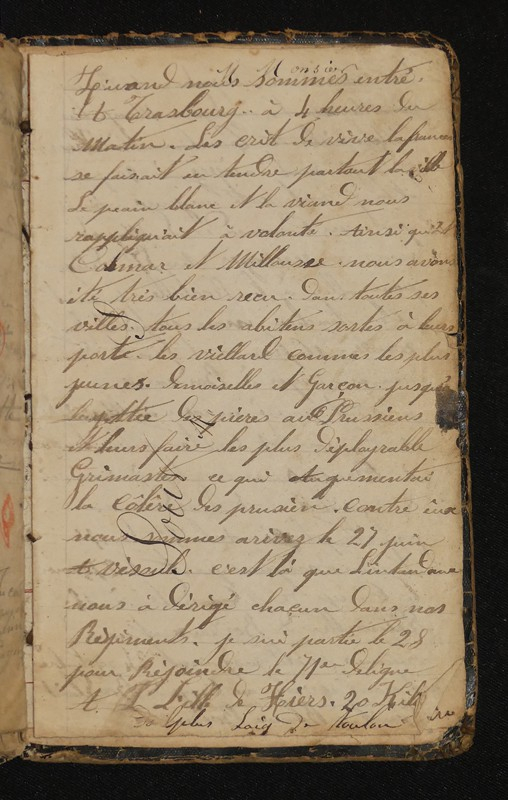 Quand nous sommes entré
à Strasbourg à 4 heures du
Matin. Les crit de vive lafrance
se faisait en tendre partout la ville
Le peain blanc et la viand nous
rappliquait à volonté. Ainsi qu'à
Colmar et Millouse. nous avons
été très bien recu. dan. toutes ses
villes. tous les abitens sortes à leurs
porte. les viellard commes les plus
jeunes. demoiselles et Garçon. jusqu'à
des pieres aux Prussiens
et leurs faire les plus déployrable
Grimaste ce qui augumentai
la côlère des prusien. contre eux
nous sommes arivez le 27 juin
à vésoul. c'est là que Lintendance
nous à dérigé chacun dans nos
Régiments. je sui partie le 28
pour Réjoindre le 71e deligne
à ville de Hiers. 20 Kilo
plus Loig de toulon